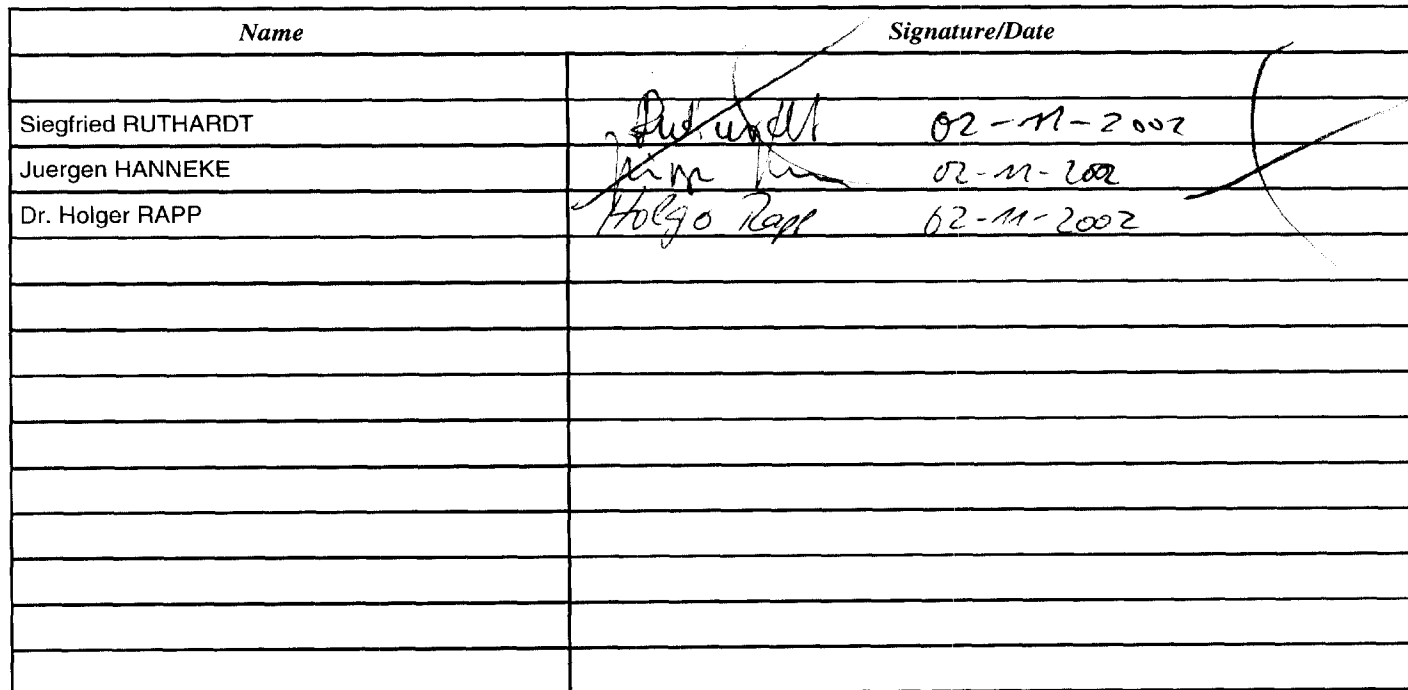 Name Signature/Date
Siegfried RUTHARDT Ruthardt 02-11-2002
Juergen HANNEKE 02-11-2002
Dr. Holger RAPP Holger Rapp 02-11-2002